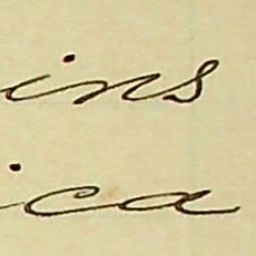 ins
ica